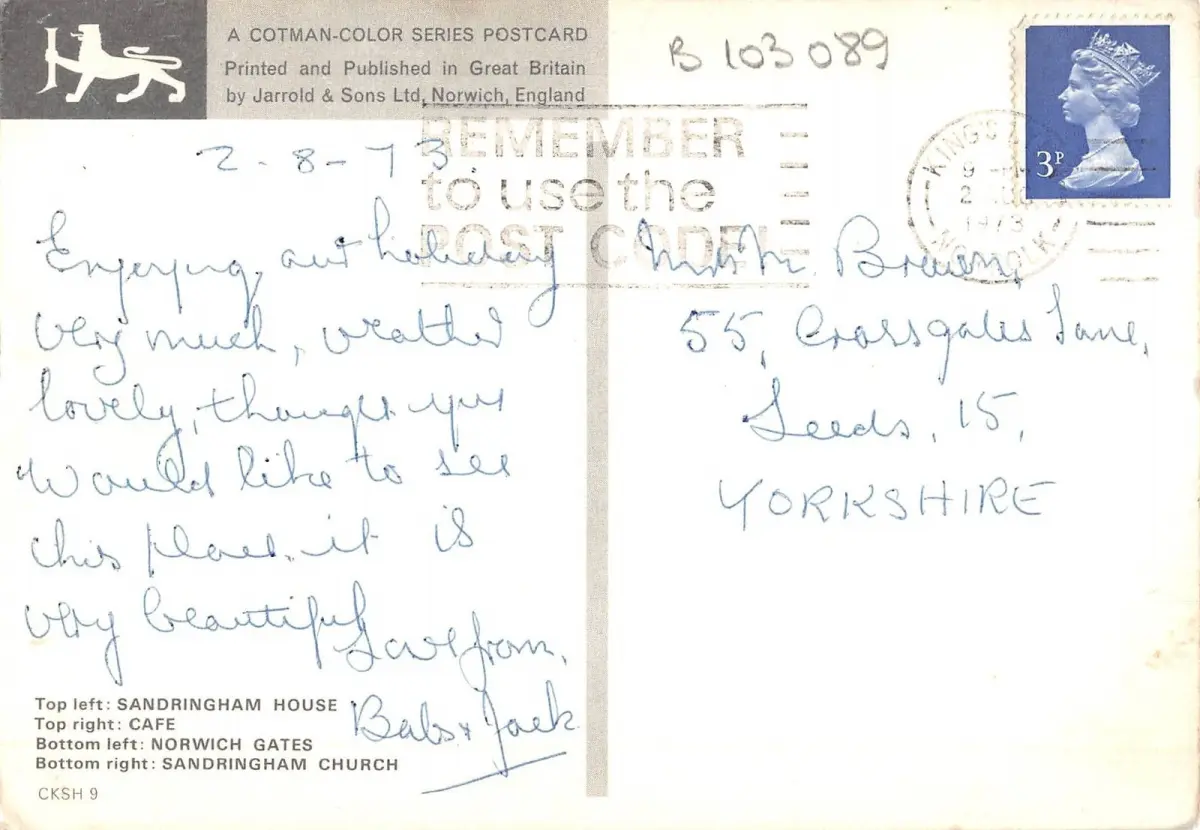 A COTMAN-COLOR SERIES POSTCARD
Printed and Published in Great Britain
by Jarrold & Sons Ltd, Norwich, England
B 103089
3P
REMEMBER
to use the
POST CODE
KING'S
9
2
1973
NORFOLK
2-8-73
Enjoying our holiday
very much, weather
lovely, thought you
would like to see
this place. it is
very beautiful
Love from,
Babs & Jack
Brown,
55, Crossgates Lane,
Leeds, 15,
YORKSHIRE
Top left: SANDRINGHAM HOUSE
Top right: CAFE
Bottom left: NORWICH GATES
Bottom right: SANDRINGHAM CHURCH
CKSH 9